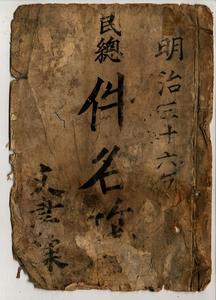 明治三十六年
民總
件名簿
文書課